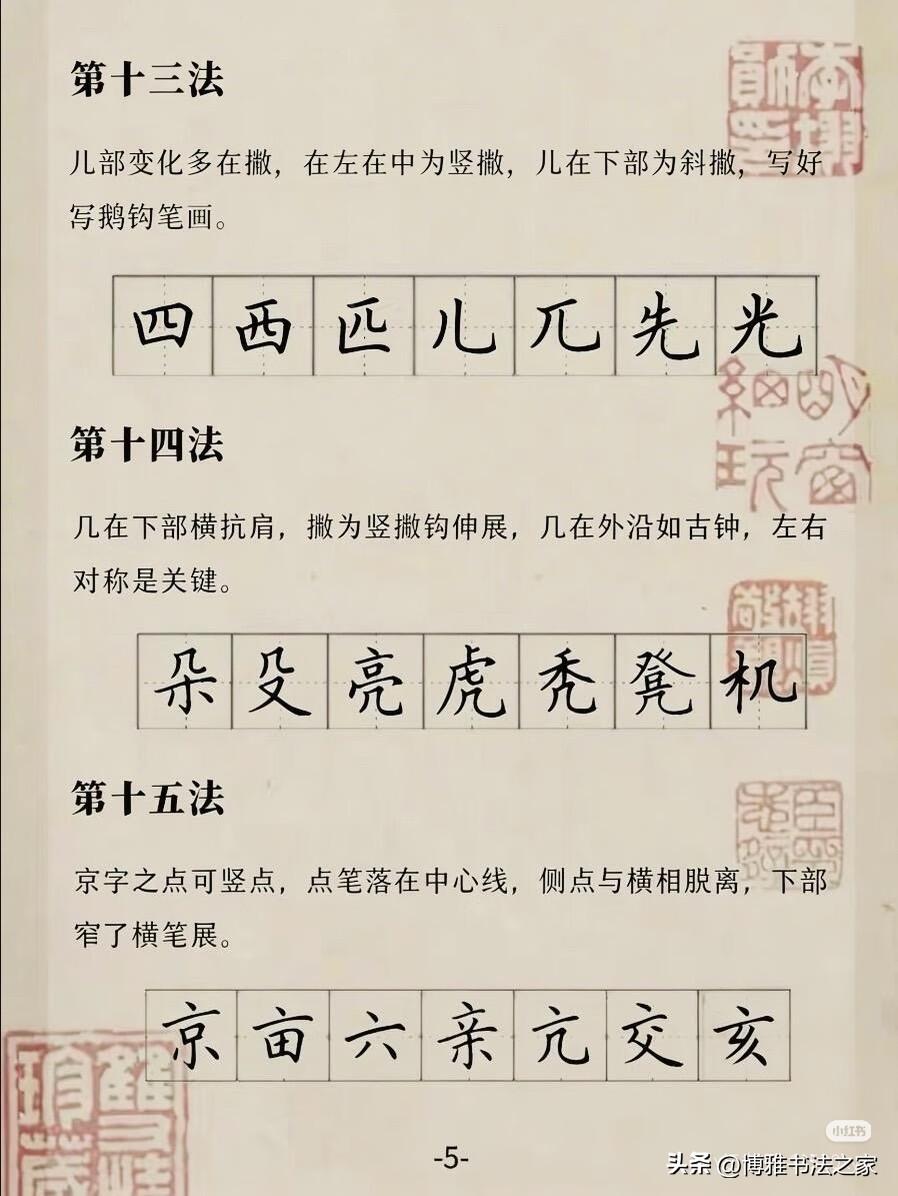 第十三法
儿部变化多在撇，在左在中为竖撇，儿在下部为斜撇，写好
写鹅钩笔画。
四西匹儿兀先光
第十四法
几在下部横抗肩，撇为竖撇钩伸展，几在外沿如古钟，左右
对称是关键。
朵殳亮虎秃凳机
第十五法
京字之点可竖点，点笔落在中心线，侧点与横相脱离，下部
窄了横笔展。
京亩六亲亢交亥
小红书
-5-
头条 @博雅书法之家